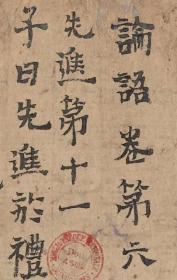 論語卷第六
先進第十一
子曰先進於禮